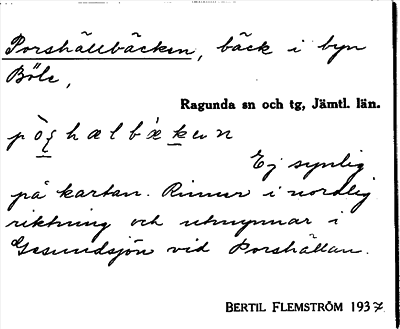 Porshällbäcken, bäck i byn
Böle,
Ragunda sn och tg, Jämtl. län.
Ej synlig
på kartan. Rinner i nordlig
riktning och utmynnar i
Gesundsjön vid Porshällan.
BERTIL FLEMSTRÖM 1937.